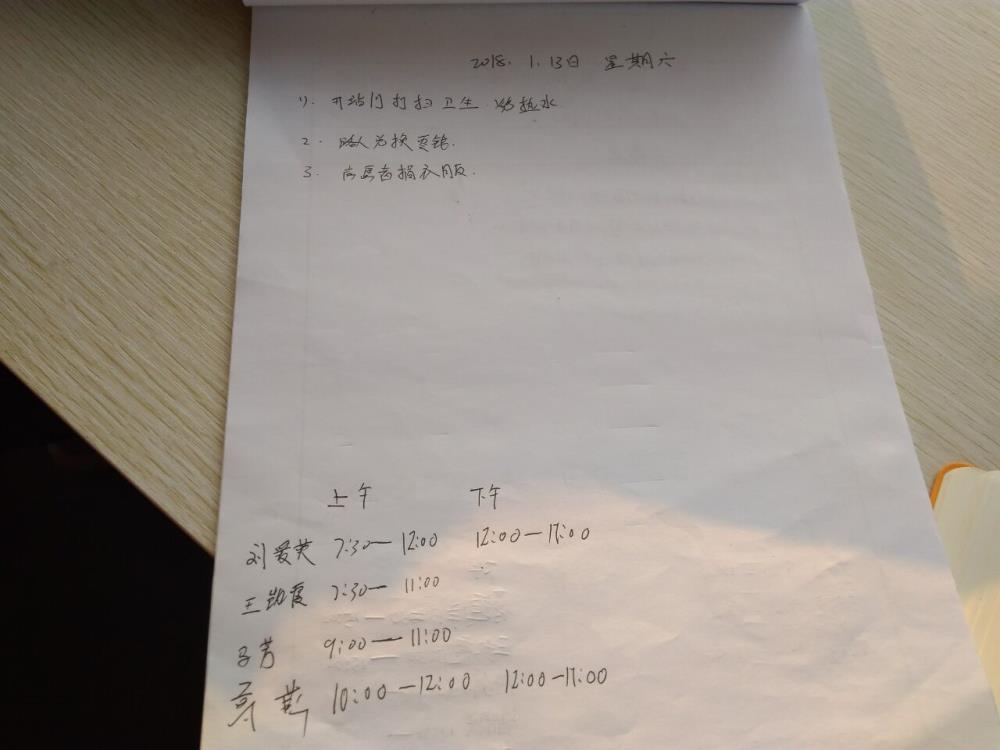 2018. 1. 13日 星期六
1). 开站门打扫卫生 烧热水
2. 路人兑换零钱.
3. 志愿者捐衣服.
上午 下午
刘爱英 7:30—12:00 12:00—17:00
王 7:30—11:00
马芳 9:00—11:00
10:00—12:00 12:00—17:00